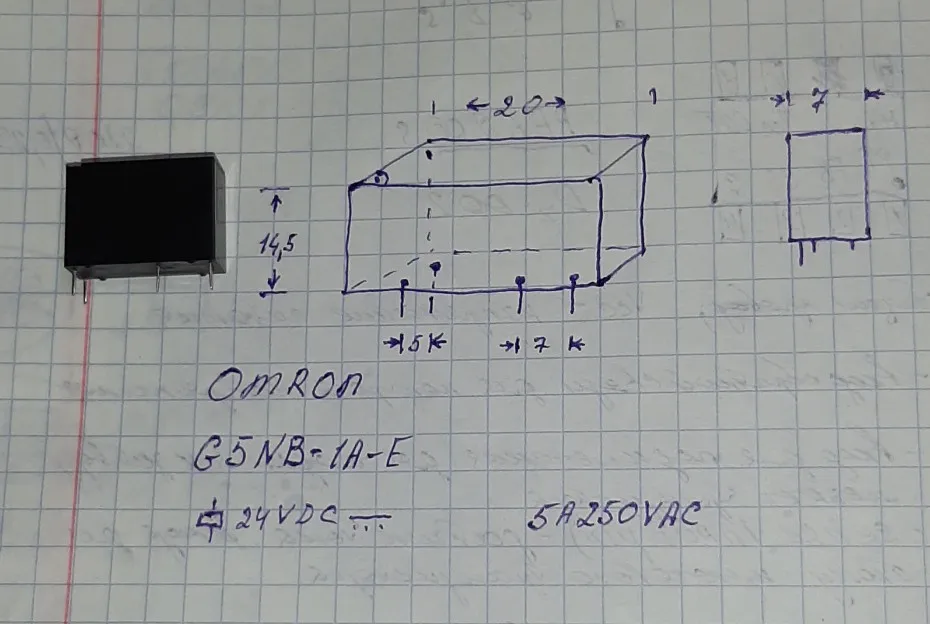 20
7
14,5
5
7
OMRON
G5NB-1A-E
24VDC
5A250VAC